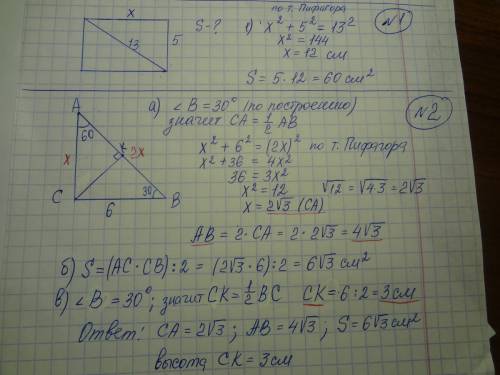 x
13
5
S-?
по т. Пифагора
1) x² + 5² = 13²
x² = 144
x = 12 см
S = 5 · 12 = 60 см²
№1
A
60
x
3x
C
6
30
B
а) ∠B = 30° (по построению)
значит CA = 1/2 AB
x² + 6² = (2x)² по т. Пифагора
x² + 36 = 4x²
36 = 3x²
x² = 12 √12 = √4·3 = 2√3
x = 2√3 (CA)
AB = 2 · CA = 2 · 2√3 = 4√3
№2
б) S = (AC · CB) : 2 = (2√3 · 6) : 2 = 6√3 см²
в) ∠B = 30°; значит CK = 1/2 BC CK = 6 : 2 = 3 см
Ответ: CA = 2√3; AB = 4√3; S = 6√3 см²
высота CK = 3 см